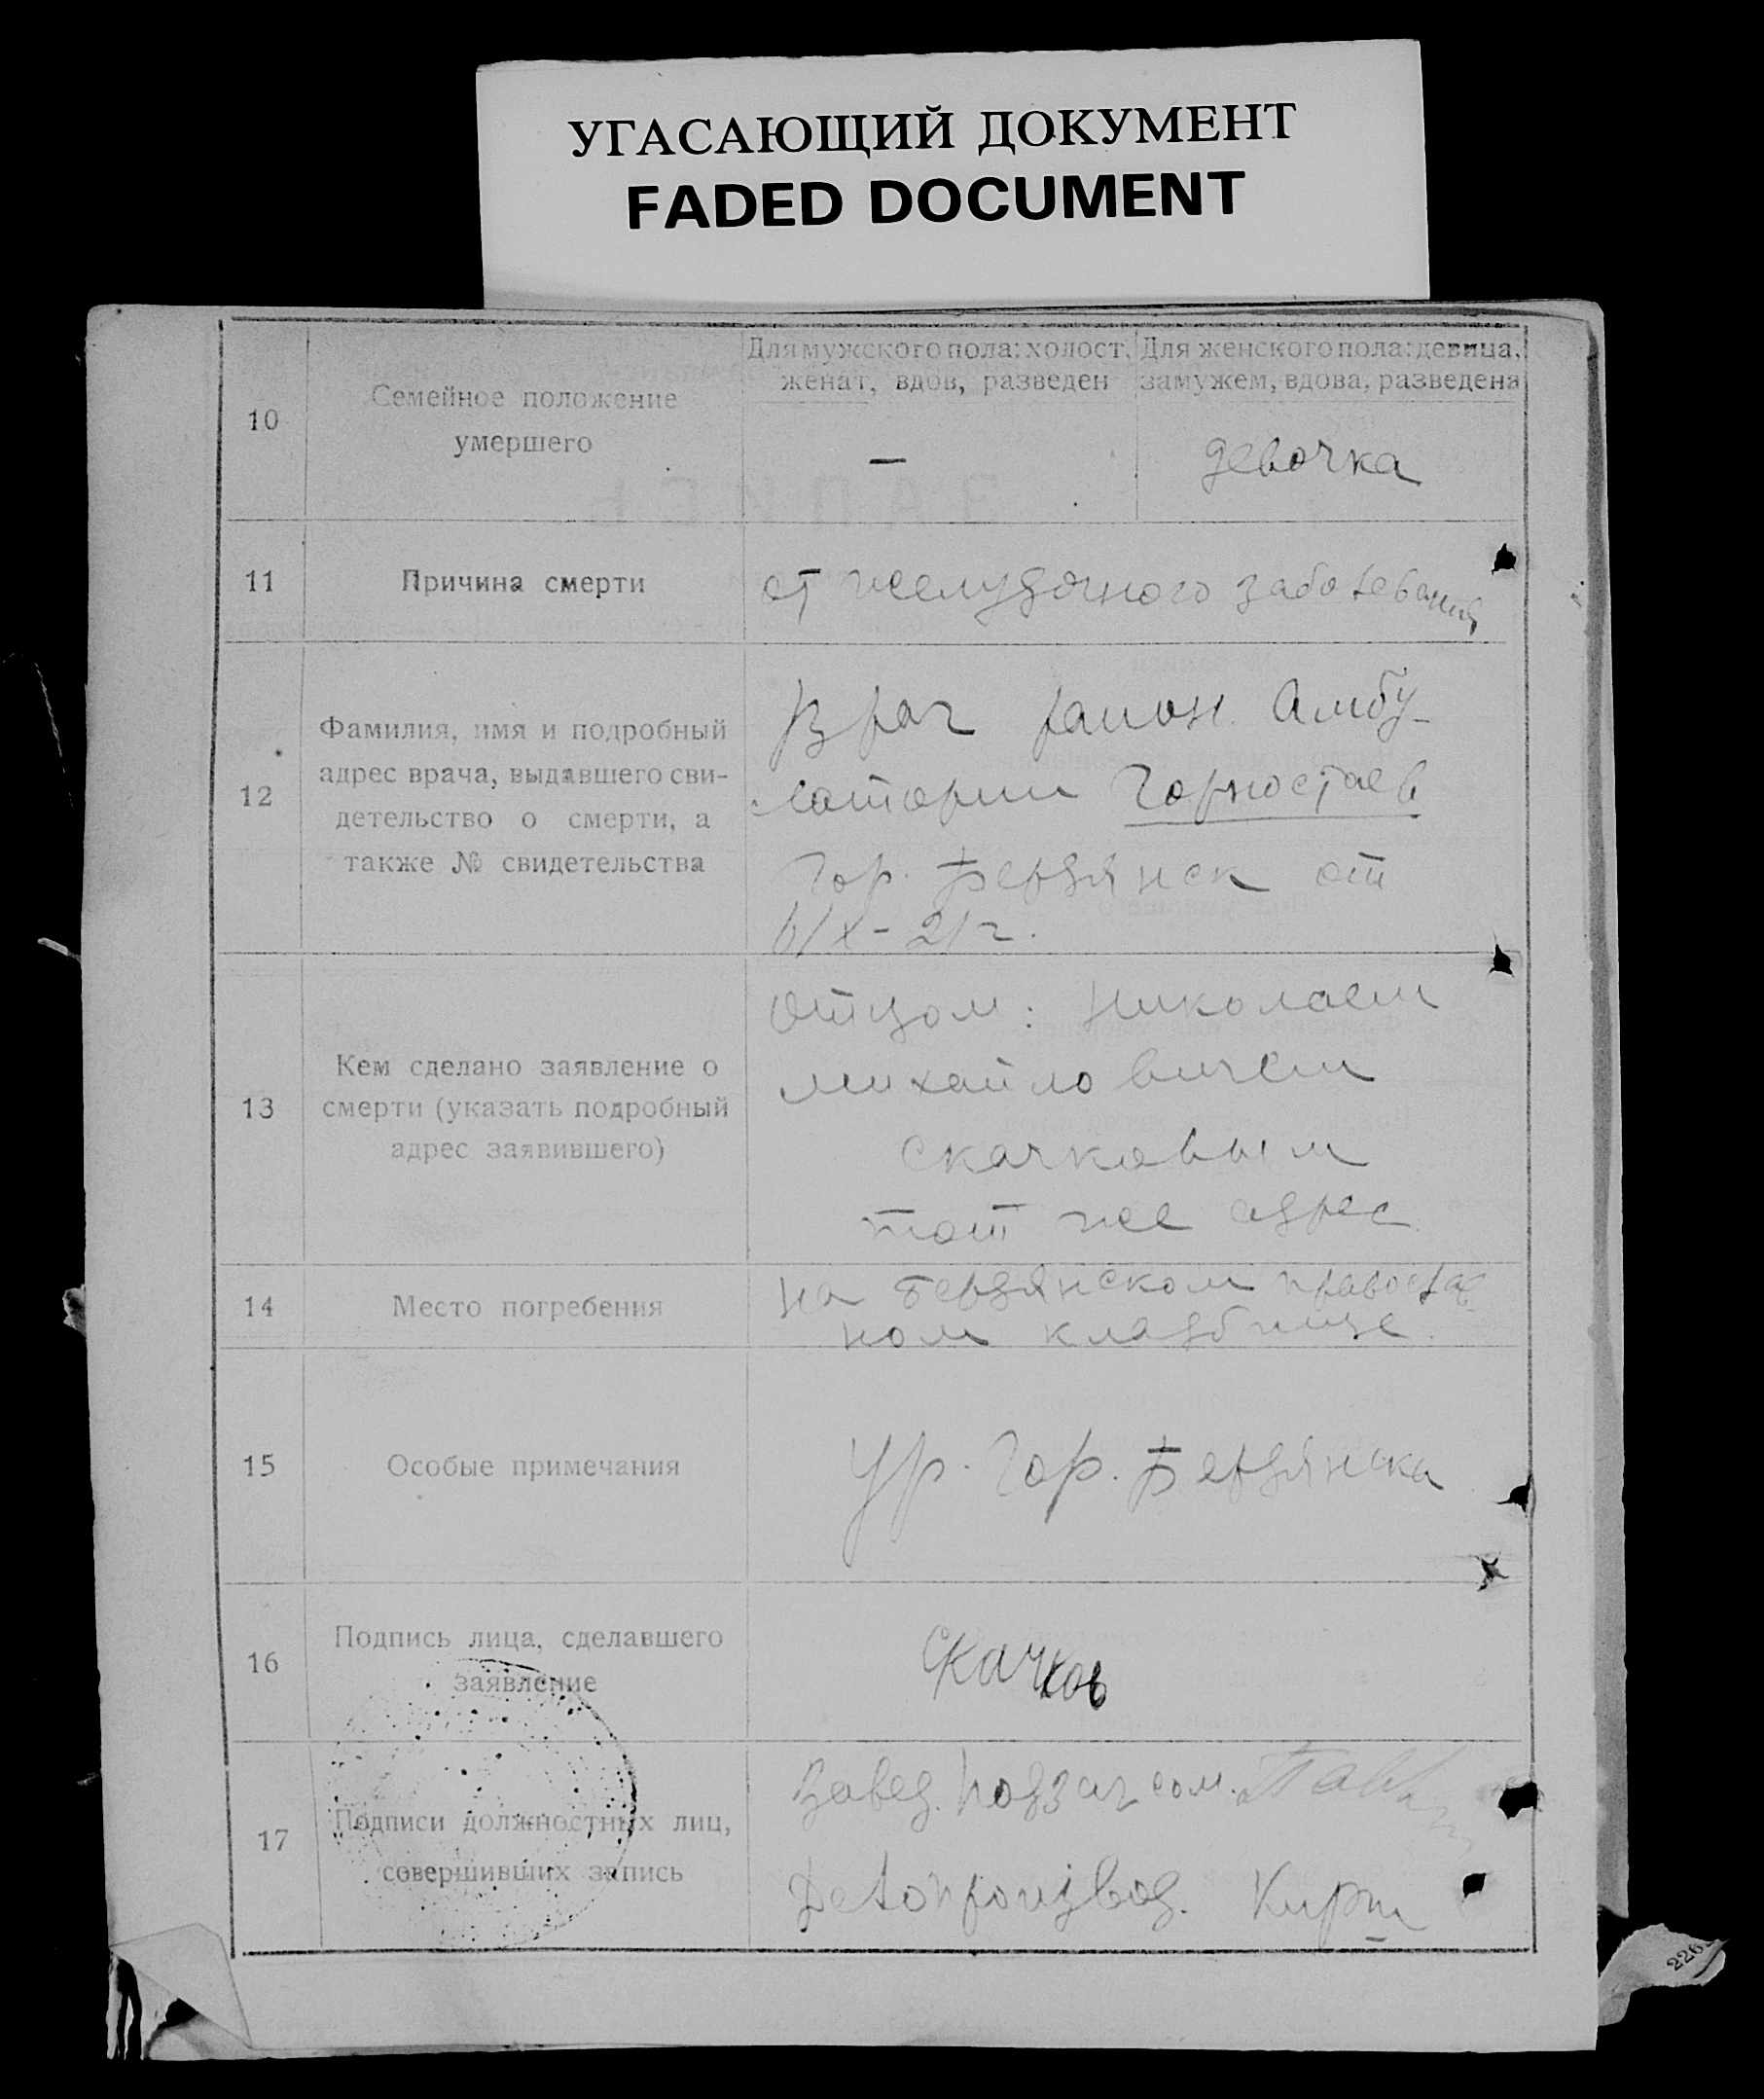 УГАСАЮЩИЙ ДОКУМЕНТ
FADED DOCUMENT
10
Семейное положение
умершего
Для мужского пола: холост,
женат, вдов, разведен
—
Для женского пола: девица,
замужем, вдова, разведена
девочка
11
Причина смерти
от желудочного заболевания
12
Фамилия, имя и подробный
адрес врача, выдавшего сви-
детельство о смерти, а
также № свидетельства
Врач район. Амбу-
латории Горностаев
Гор. Бердянск от
6/X-21г.
13
Кем сделано заявление о
смерти (указать подробный
адрес заявившего)
Отцом: Николаем
Михайловичем
Скачковым
тот же адрес
14
Место погребения
на бердянском православ-
ном кладбище.
15
Особые примечания
Ур. Гор. Бердянска
16
Подпись лица, сделавшего
заявление
Скачков
17
Подписи должностных лиц,
совершивших запись
Завед. подзагсом.
Делопроизвод.
226